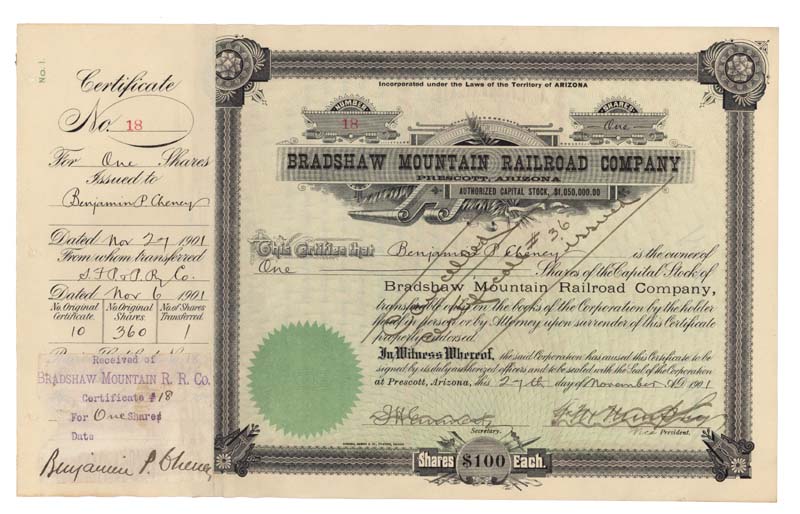 No. 1.
Certificate
No. 18
For One Shares
Issued to
Benjamin P. Cheney
Dated Nov 27 1901
From whom transferred
S. F. P. & P. Ry Co.
Dated Nov 6 1901
No. Original Certificate.
No. Original Shares.
No. of Shares Transferred.
10 360 1
Received of
BRADSHAW MOUNTAIN R. R. Co.
Certificate #18
For One Shares
Date
Benjamin P. Cheney
Incorporated under the Laws of the Territory of ARIZONA
NUMBER
18
SHARES
One
BRADSHAW MOUNTAIN RAILROAD COMPANY
PRESCOTT, ARIZONA
AUTHORIZED CAPITAL STOCK, $1,050,000.00
This Certifies that Benjamin P. Cheney is the owner of
One Shares of the Capital Stock of
Bradshaw Mountain Railroad Company,
transferable only on the books of the Corporation by the holder
hereof in person or by Attorney upon surrender of this Certificate
properly endorsed.
Cancelled
# 36
issued
In Witness Whereof, the said Corporation has caused this Certificate to be
signed by its duly authorized officers and to be sealed with the Seal of the Corporation
at Prescott, Arizona, this 27th day of November A.D. 1901
Secretary.
Vice President.
Shares $100 Each.